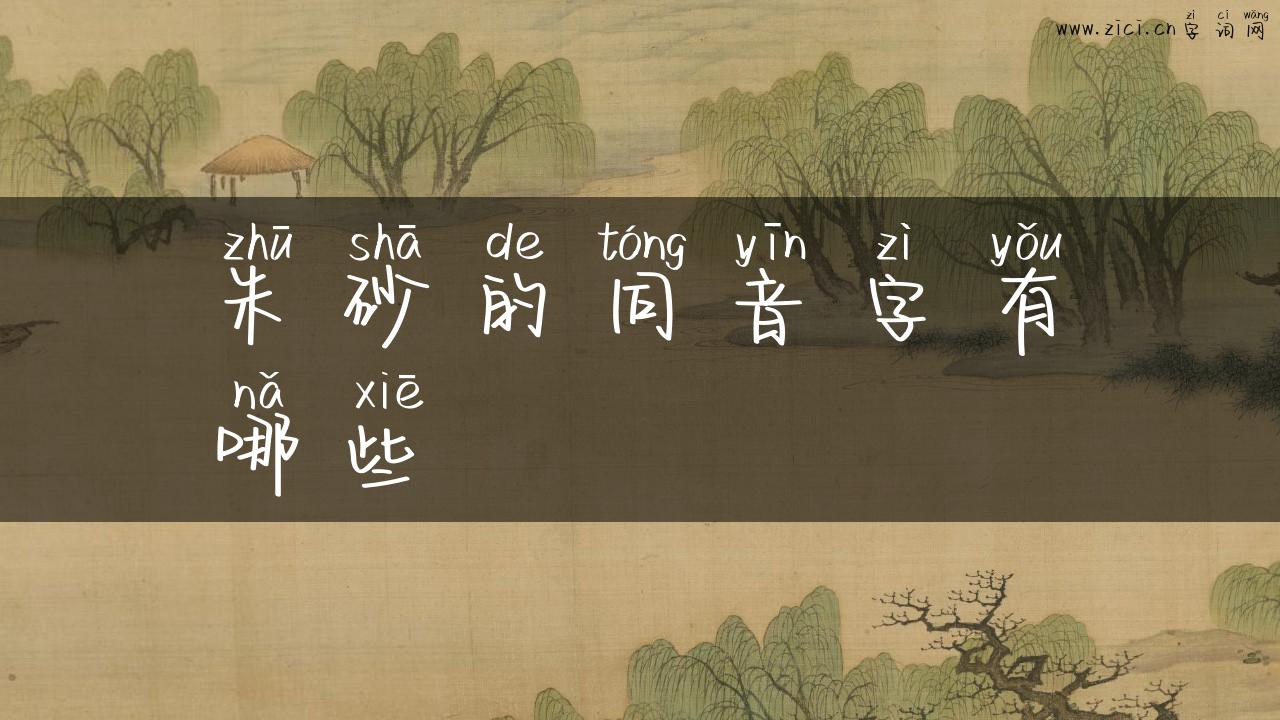 zì cí wǎng
www.zici.cn 字 词 网
zhū shā de tóng yīn zì yǒu
朱 砂 的 同 音 字 有
nǎ xiē
哪 些